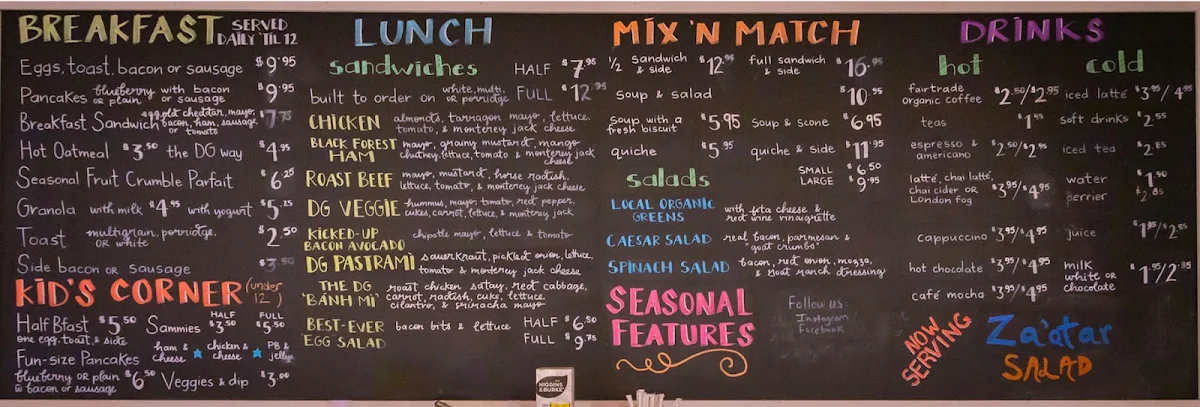 BREAKFAST SERVED DAILY 'TIL 12
Eggs, toast, bacon or sausage $9.95
Pancakes blueberry or plain with bacon or sausage $9.95
Breakfast Sandwich egg, old cheddar, mayo, bacon, ham, sausage, or tomato $7.75
Hot Oatmeal $3.50 the DG way $4.95
Seasonal Fruit Crumble Parfait $6.25
Granola with milk $4.95 with yogurt $5.25
Toast multigrain, porridge, OR white $2.50
Side bacon or sausage $3.50
KID'S CORNER (under 12)
HALF FULL
Half Bfast $5.50 Sammies $3.50 $5.50
one egg, toast, & side
ham & cheese ★ chicken & cheese ★ PB & jelly
Fun-size Pancakes
blueberry OR plain $6.50 Veggies & dip $3.00
w bacon or sausage
LUNCH
sandwiches HALF $7.95
built to order on white, multi, OR porridge FULL $12.95
CHICKEN almonds, tarragon mayo, lettuce, tomato, & monterey jack cheese
BLACK FOREST HAM mayo, grainy mustard, mango chutney, lettuce, tomato & monterey jack cheese
ROAST BEEF mayo, mustard, horse radish, lettuce, tomato, & monterey jack cheese
DG VEGGIE hummus, mayo, tomato, red pepper, cukes, carrot, lettuce, & monterey jack
KICKED-UP BACON AVOCADO chipotle mayo, lettuce & tomato
DG PASTRAMI sauerkraut, pickled onion, lettuce, tomato & monterey jack cheese
THE DG 'BÁNH MÌ' roast chicken satay, red cabbage, carrot, radish, cuke, lettuce, cilantro, & sriracha mayo
BEST-EVER EGG SALAD bacon bits & lettuce HALF $6.50
FULL $9.75
MIX 'N MATCH
1/2 sandwich & side $12.95 full sandwich & side $16.95
soup & salad $10.95
soup with a fresh biscuit $5.95 soup & scone $6.95
quiche $5.95 quiche & side $11.95
salads SMALL $6.50
LARGE $9.95
LOCAL ORGANIC GREENS with feta cheese & red wine vinaigrette
CAESAR SALAD real bacon, parmesan & "goat crumbs"
SPINACH SALAD bacon, red onion, mozza, & goat ranch dressing
SEASONAL FEATURES
Follow us:
Instagram
Facebook
DRINKS
hot
fairtrade organic coffee $2.50/$2.95
teas $1.95
espresso & americano $2.50/$2.95
latté, chai latté, chai cider OR London fog $3.95/$4.95
cappuccino $3.95/$4.95
hot chocolate $3.95/$4.95
café mocha $3.95/$4.95
cold
iced latté $3.95/4.95
soft drinks $2.55
iced tea $2.85
water $1.50
perrier $2.85
juice
milk white OR chocolate
NOW SERVING
Za'atar
SALAD
HIGGINS & BURKE